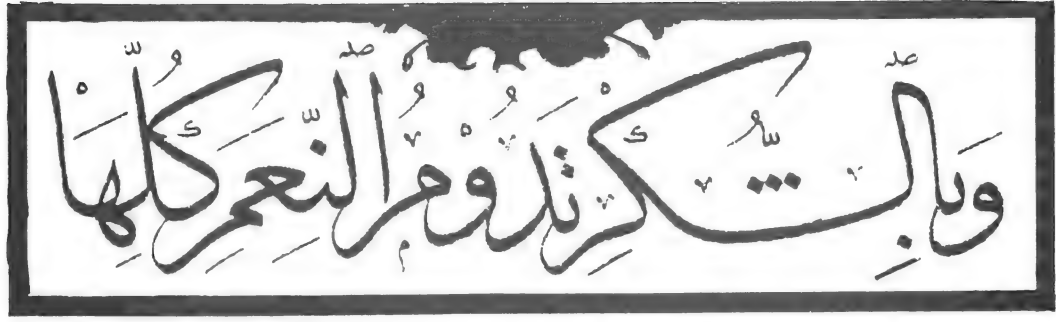 وَبِٱلشُّكْرِ تَدُوْمُ ٱلنِّعَمِ كُلِّهَا